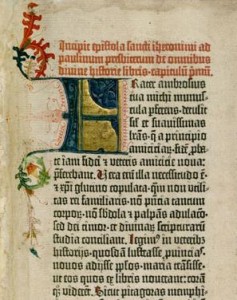 Incipit epistola sancti iheronimi ad
paulinum presbiterum de omnibus
divine historie libris. capitulum pmū.
Frater ambrosius
tua michi munus-
cula perferens. detulit
sił et suavissimas
lrās. q̄ a principio
amiciciaꝝ. fidē pba-
te iam fidei et veteris amicicie nova:
pferebant. Vera eni illa necessitudo ē.
et xp̄i glutino copulata. qm̄ non vtili-
tas rei familiaris. nō pn̄cia tantum
corpoꝝ. nō sbdola et palpās adulacō.
sed dei timor. et divinaꝝ scripturarū
studia conciliant. Legim⁹ in veterib⁹
historijs. quosdā lustrasse. p̄uīcias.
novos adijsse pp̄los. maria trāsisse.
vt eos quos ex libris noverant: corā
qꝫ viderēt. Sicut pitagoras memphi-